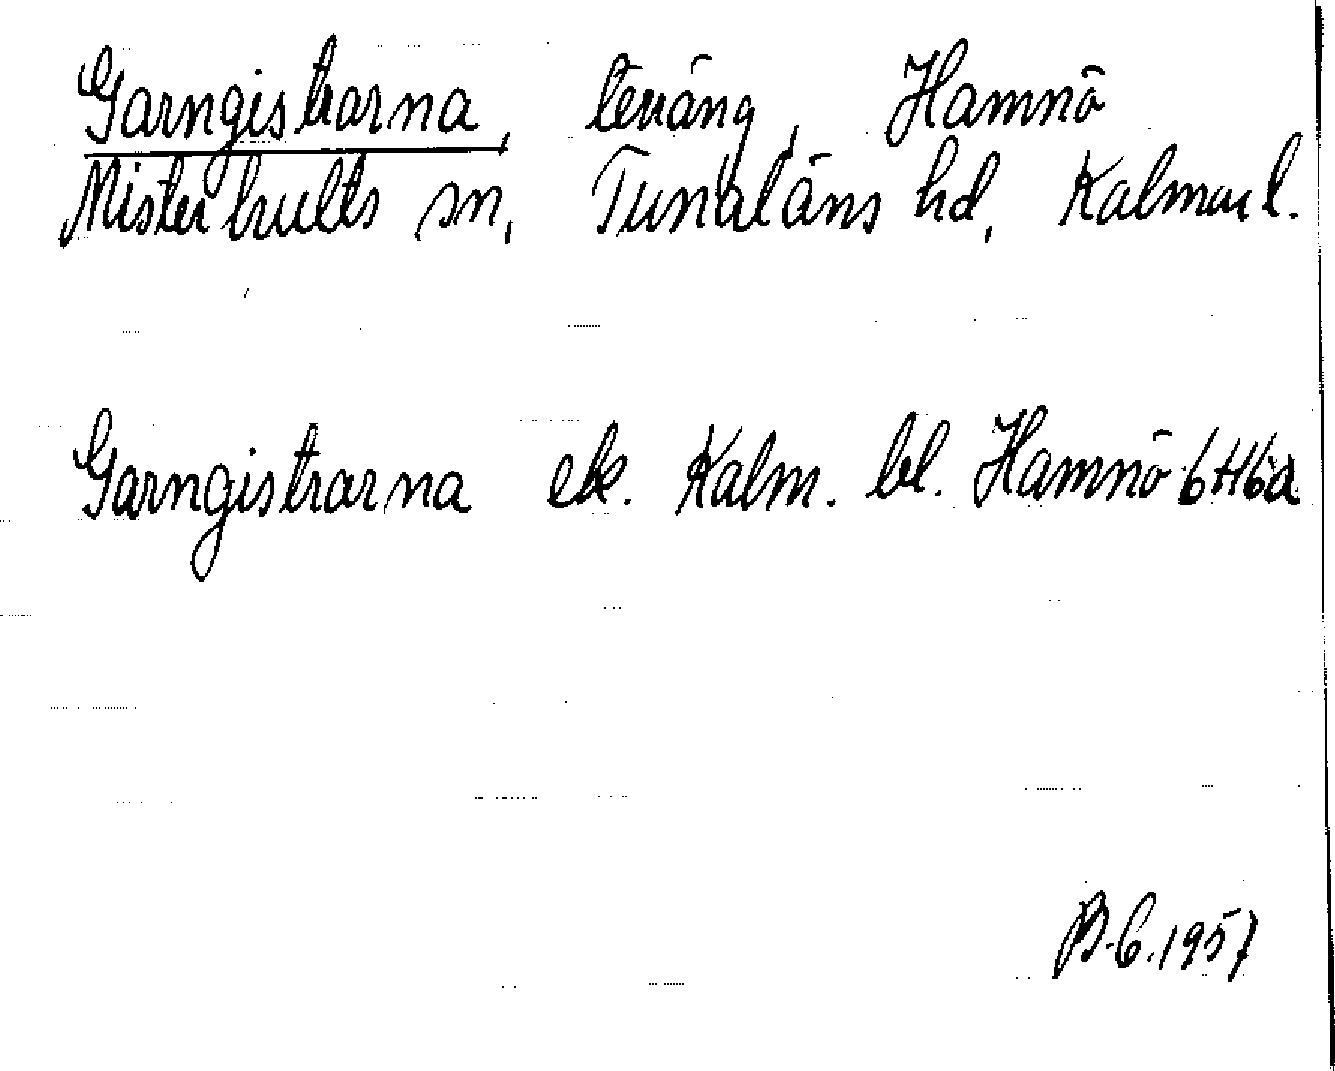 Garngistrarna, terräng, Hamnö
Misterhults sn, Tunaläns hd, Kalmar l.
Garngistrarna ek. Kalm. bl. Hamnö 6H6a
B.C. 1957